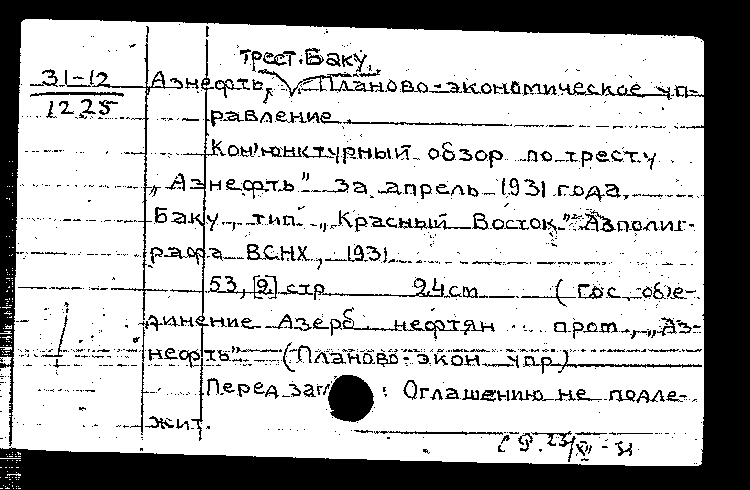 трест. Баку.
31-12 Азнефть, Планово-экономическое уп-
1225 равление.
Кон'юнктурный обзор по тресту
„Азнефть" за апрель 1931 года.
Баку, тип. „Красный Восток" Азполиг-
рафа ВСНХ, 1931.
53, [2] стр 24 см (Гос. объе-
динение Азерб. нефтян. пром., „Аз-
нефть" (Планово-экон. упр)
Перед заг : Оглашению не подле-
жит.